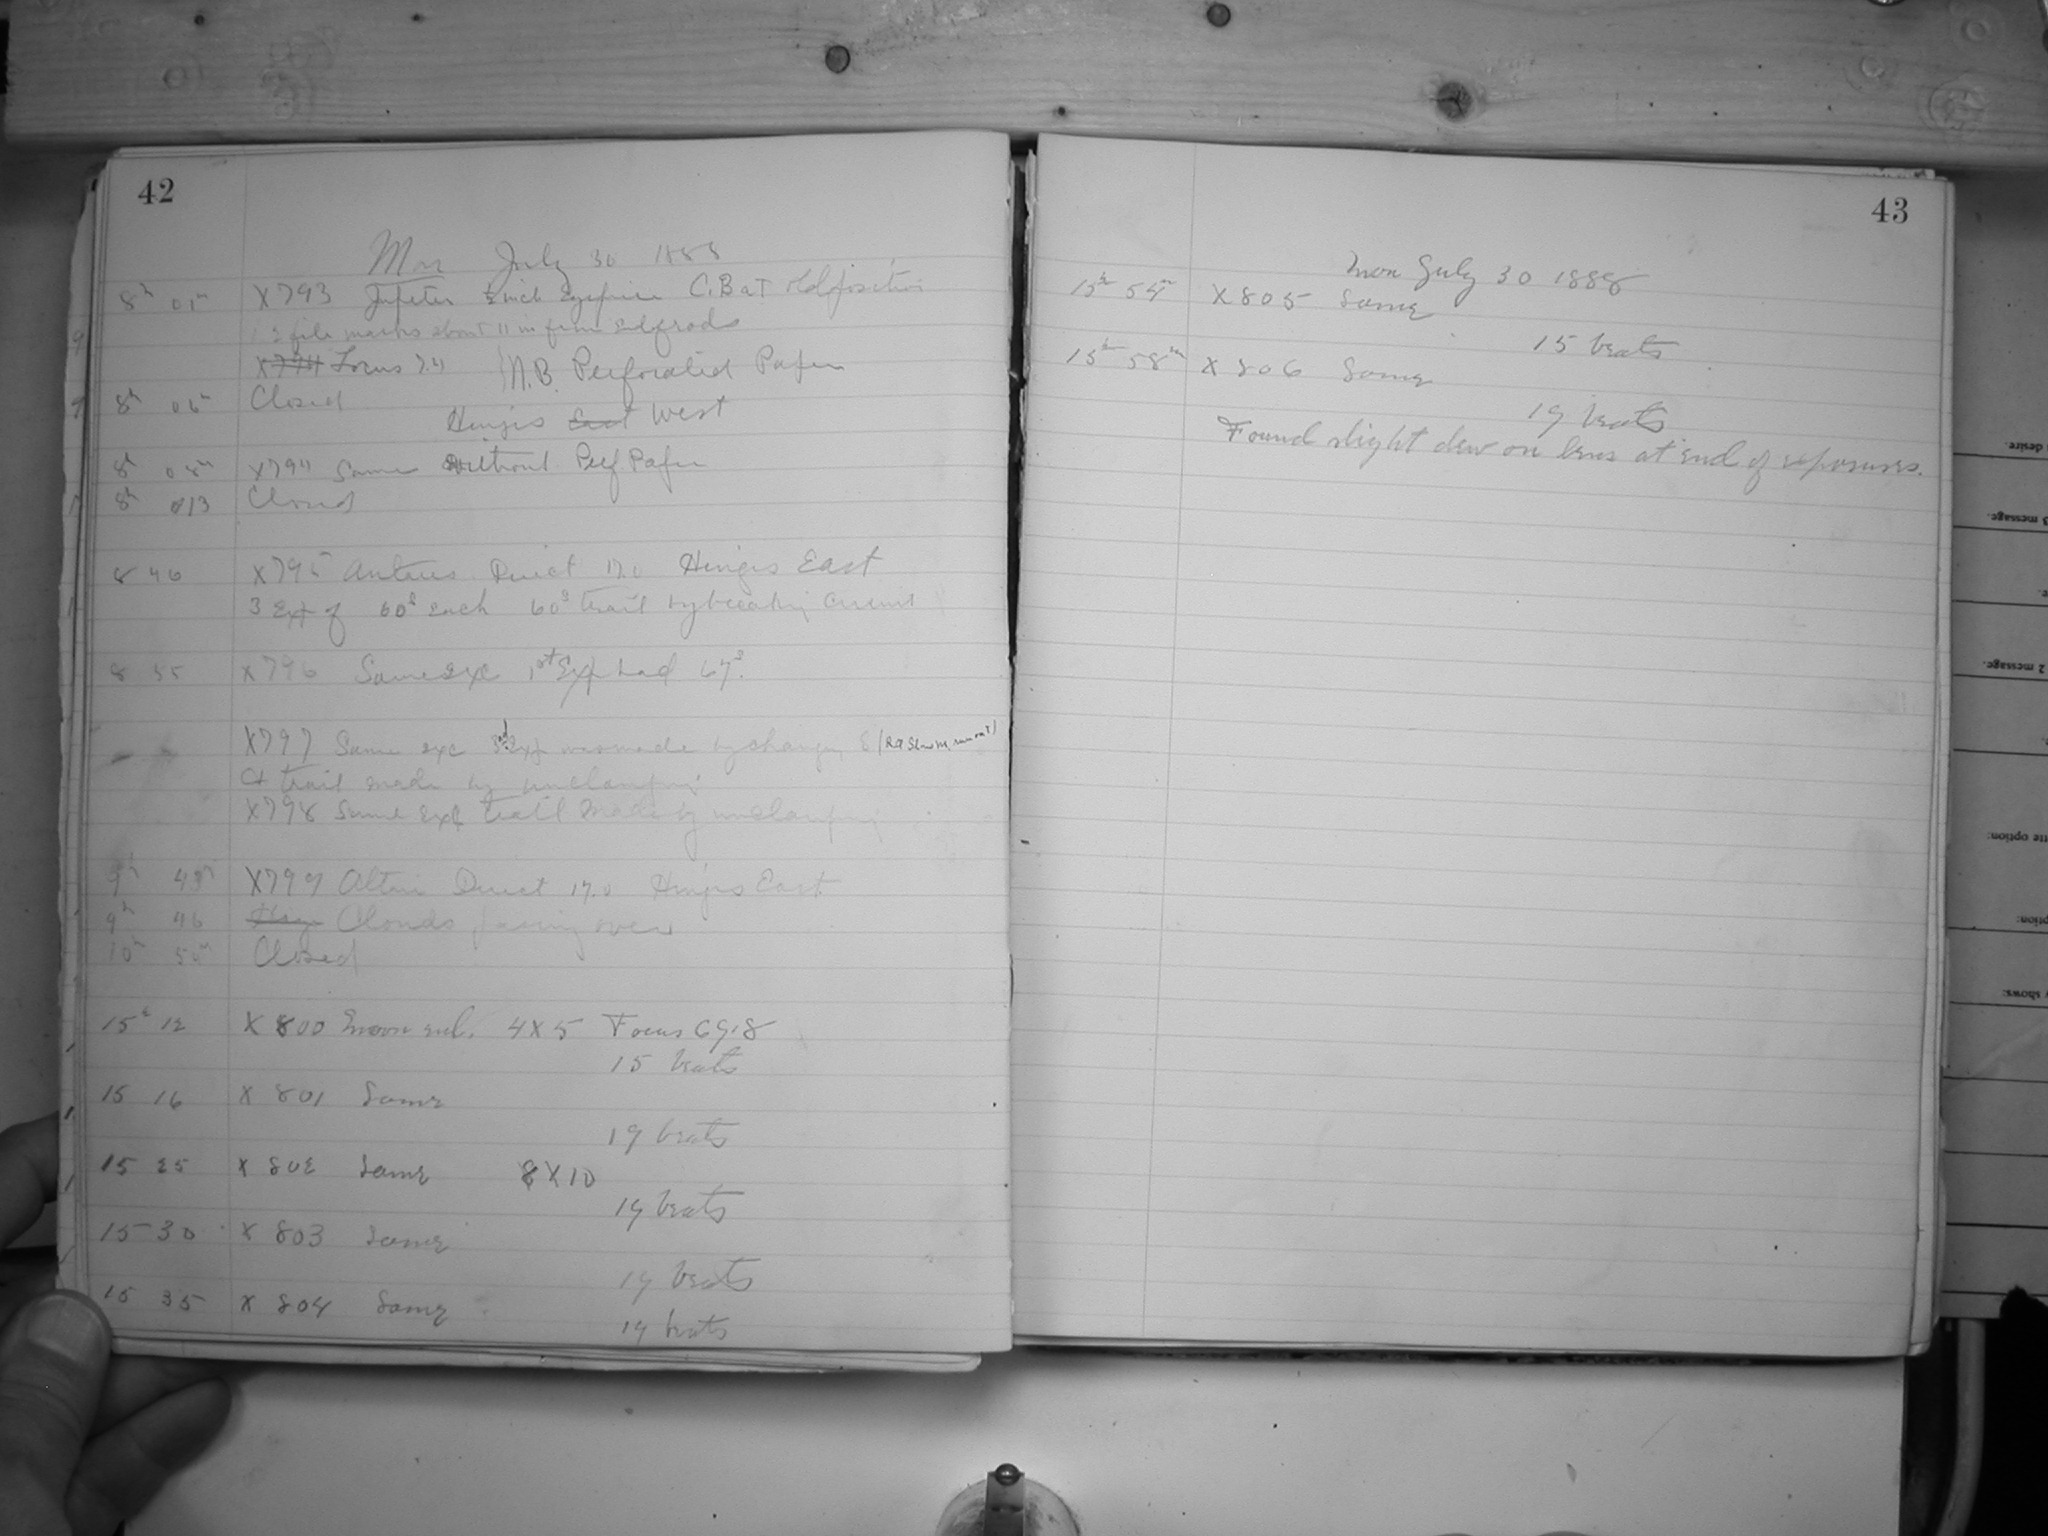 42
Mon July 30 1888
8h 01m X793 Jupiter inch Eyepiece C.B at Old position
2 file marks about 11 in from end of rods
X794 Focus 7.4 N.B. Perforated Paper
8h 06m Closed
Hinges East West
8h 08m X794 Same Without Perf Paper
8h 13 Closed
8 46 X795 Antares Direct 17.0 Hinges East
3 Exp of 60s each 60s trail by breaking Current
8 55 X796 Same exc 1st Exp had 67s.
X797 Same exc 3rd Exp was made by changing (RA Slow M
& trail made by unclamping
X798 Same Exc trail made by unclamping
9h 45m X799 Altair Direct 17.0 Hinges East
9h 46 Clouds passing over
10h 50m Closed
15h 12 X 800 Moon enl. 4X5 Focus 69.8
15 beats
15 16 X 801 Same
19 beats
15 25 X 802 Same 8X10
19 beats
15 30 X 803 Same
19 beats
15 35 X 804 Same
19 beats
43
Mon July 30 1888
15h 54m X 805 Same
15 beats
15h 58m X 806 Same
19 beats
Found slight dew on lens at end of exposures.
desire.
3 message.
2 message.
option:
option:
shows: